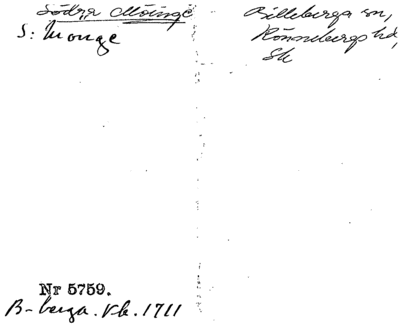 Södra Möinge
S: Mönge
Billeberga sn,
Rönnebergs hd,
Sk
Nr 5759.
B-berga. Vb. 1711